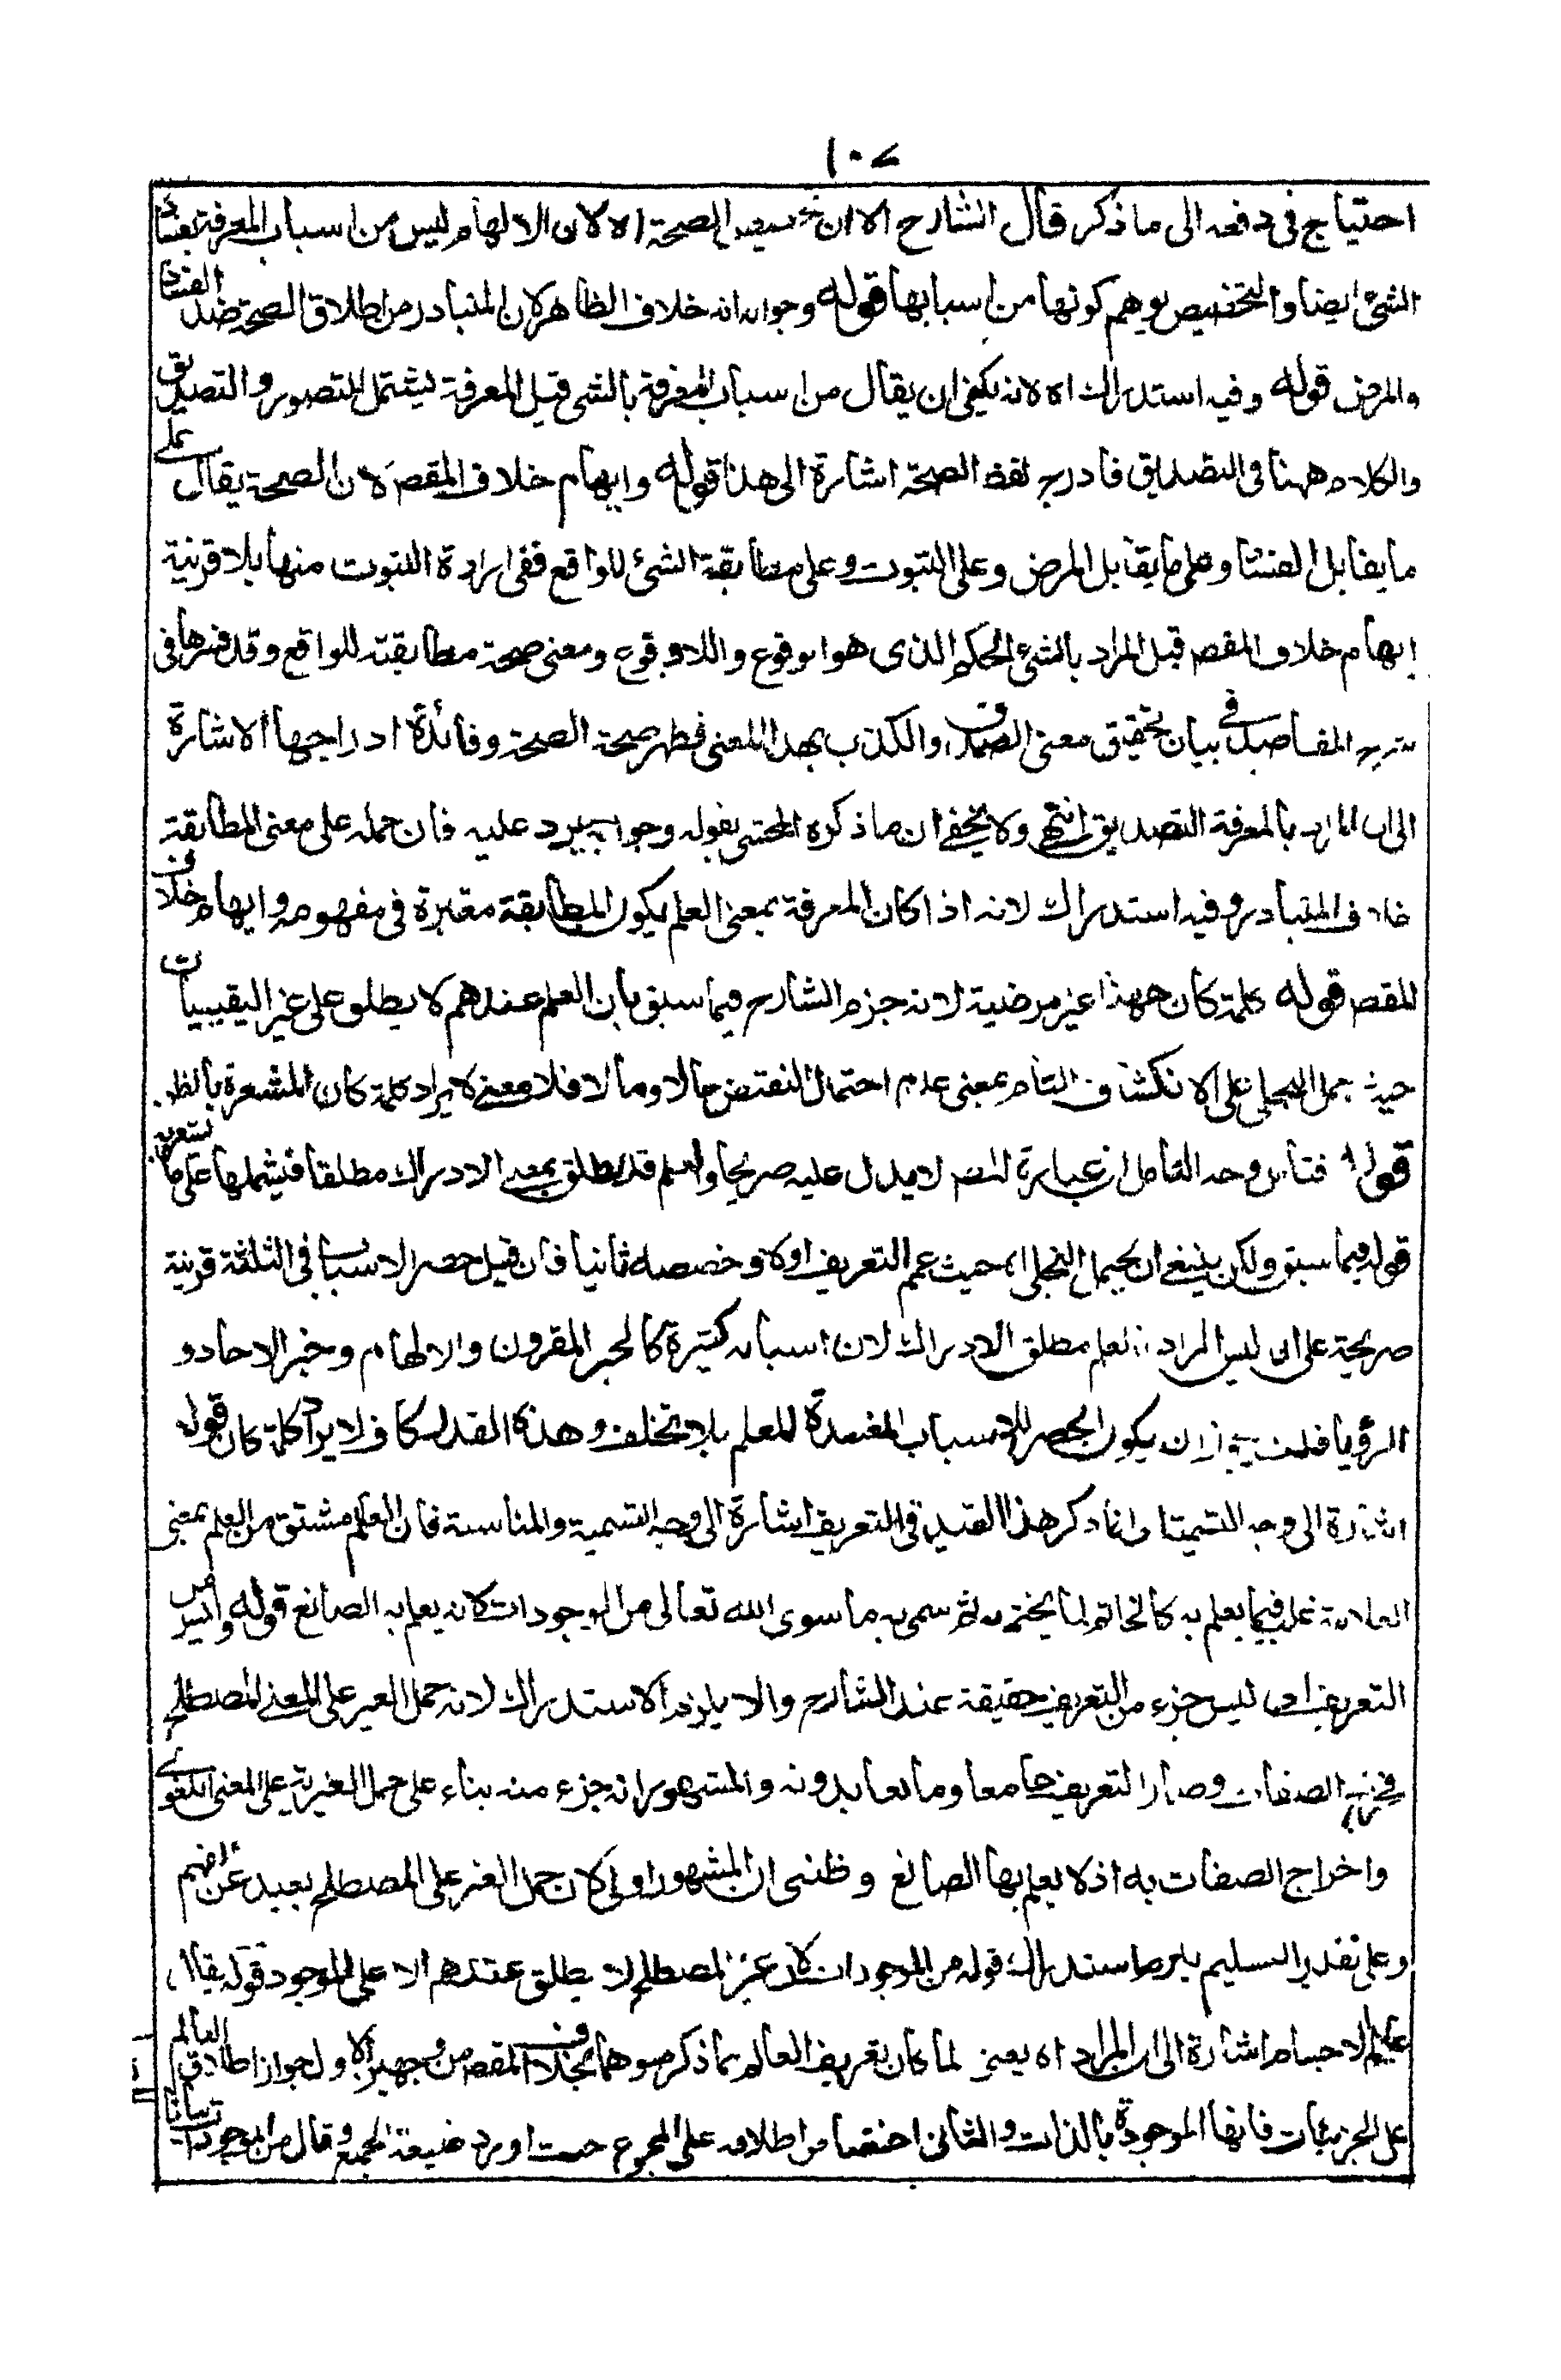 ١٠٧
احتياج فى دفعه الى ما ذكر قال الشارح الا ان تخصيص الصحة اه لان الالهام ليس من اسباب المعرفة بفساد
الشئ ايضا والتخصيص يوهم كونها من اسبابها قوله وجوابه انه خلاف الظاهر لان المتبادر من اطلاق الصحة ضد الفساد
والمرض قوله وفيه استدراك اه لانه يكفى ان يقال من اسباب المعرفة بالشئ قيل المعرفة ليشتمل التصور والتصديق
والكلام ههنا فى التصديق فادرج لفظ الصحة اشارة الى هذا قوله وايهام خلاف المقصد لان الصحة يقال على
ما يقابل الفساد وعلى ما يقابل المرض وعلى الثبوت وعلى مطابقة الشئ للواقع ففى ارادة الثبوت منها بلا قرينة
ايهام خلاف المقصد قيل المراد بالشئ الحكم الذى هو الوقوع واللاوقوع ومعنى صحته مطابقته للواقع وقد فسرها فى
شرح المقاصد فى بيان تحقيق معنى الصدق والكذب بهذا المعنى فظهر صحة الصحة وفائدة ادراجها الاشارة
الى ان المراد بالمعرفة التصديق انتهى ولا يخفى ان ما ذكره المحشى بقوله وجوابه يرد عليه فان حمله على معنى المطابقة
خلاف المتبادر وفيه استدراك لانه اذا كان المعرفة بمعنى العلم يكون المطابقة معتبرة فى مفهومه وايهام خلاف
المقصد قوله كلمة كان ههنا غير مرضية لانه جزم الشارح فيما سبق بان العلم عندهم لا يطلق على غير اليقينيات
حيث حمل التجلى على الانكشاف التام بمعنى عدم احتمال النقيض حالا ومالا فلا معنى لايراد كلمة كان المشعرة بالظن
قوله فتأمل وجه التأمل ان عبارة المصنف لا يدل عليه صريحا والعلم قد يطلق بمعنى الادراك مطلقا فيشملها على ما يشعر به
قوله فيما سبق ولكن ينبغى ان يحمل التجلى اه حيث عمم التعريف اولا وخصصه ثانيا فان قيل حصر الاسباب فى الثلثة قرينة
صريحة على ان ليس المراد بالعلم مطلق الادراك لان اسبابه كثيرة كالخبر المقرون والالهام وخبر الاحاد و
الرؤيا قلنا يجوز ان يكون الحصر للاسباب المفيدة للعلم بلا تخلف وهذا القدر كاف لايراد كلمة كان قوله
اشارة الى وجه التسمية اه انما ذكر هذا القيد فى التعريف اشارة الى وجه التسمية والمناسبة فان العالم مشتق من العلم بمعنى
العلامة غلب فيما يعلم به كالخاتم لما يختم به ثم سمى به ما سوى الله تعالى من الموجودات لانه يعلم به الصانع قوله وليس من
التعريف اى ليس جزء من التعريف حقيقة عند الشارح والا يلزم الاستدراك لانه حمل الغير على المعنى المصطلح
فخرج به الصفات وصار التعريف جامعا ومانعا بدونه والمشهور انه جزء منه بناء على حمل الغيرية على المعنى اللغوى
واخراج الصفات به اذ لا يعلم بها الصانع وظنى ان المشهور اولى لان حمل الغير على المصطلح بعيد عن الفهم
وعلى تقدير التسليم يلزم استدراك قوله من الموجودات لان غير المصطلح لا يطلق عندهم الا على الموجود قوله يقال
عالم الاجسام اشارة الى ان المراد اه يعنى لما كان تعريف العالم بما ذكر موهما بخلاف المقصد من وجهين الاول جواز اطلاق العالم
على الجزئيات فانها الموجودة بالذات والثانى اختصاص اطلاقه على المجموع حيث اورد صيغة الجمع وقال من الموجودات